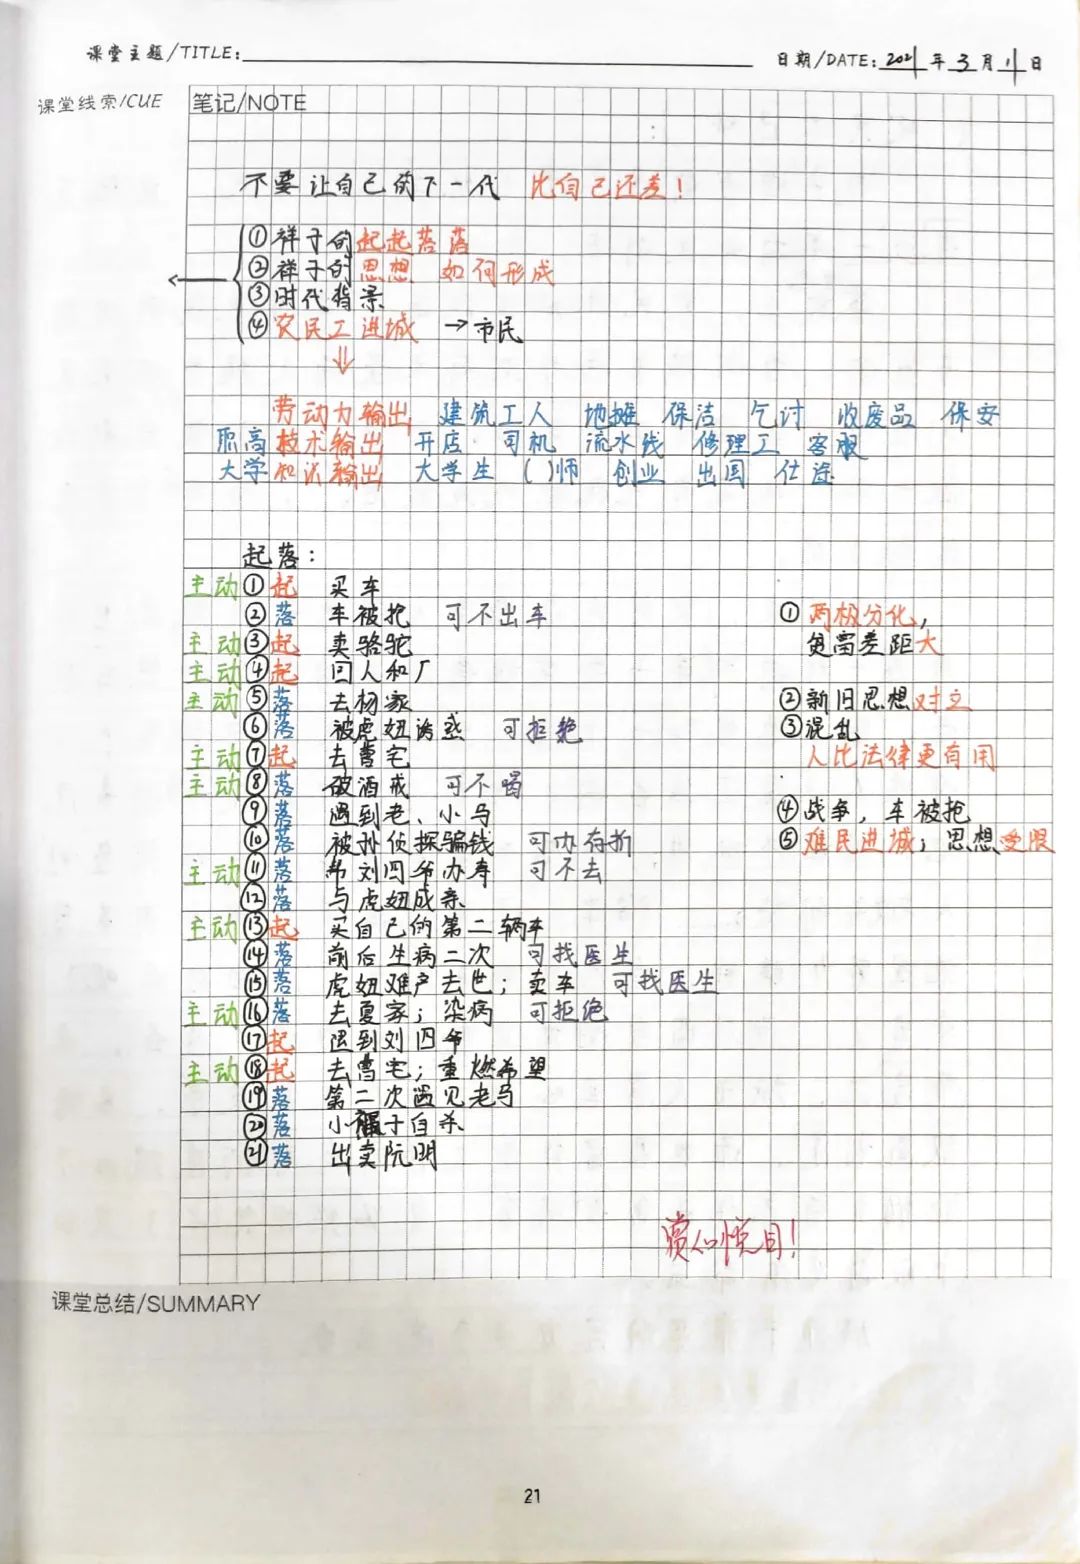 课堂主题/TITLE:
日期/DATE: 2021 年 3 月 11 日
课堂线索/CUE
笔记/NOTE
不要让自己的下一代 比自己还差!
①祥子的起起落落
②祥子的思想 如何形成
③时代背景
④农民工进城 →市民
⇓
劳动力输出 建筑工人 地摊 保洁 乞讨 收废品 保安
职高技术输出 开店 司机 流水线 修理工 客服
大学知识输出 大学生 ( )师 创业 出国 仕途
起落:
主动①起 买车
②落 车被抢 可不出车
主动③起 卖骆驼
主动④起 回人和厂
主动⑤落 去杨家
⑥落 被虎妞诱惑 可拒绝
主动⑦起 去曹宅
主动⑧落 破酒戒 可不喝
⑨落 遇到老、小马
⑩落 被孙侦探骗钱 可办存折
主动⑪落 帮刘四爷办寿 可不去
⑫落 与虎妞成亲
主动⑬起 买自己的第二辆车
⑭落 前后生病二次 可找医生
⑮落 虎妞难产去世; 卖车 可找医生
主动⑯落 去夏家; 染病 可拒绝
⑰起 遇到刘四爷
主动⑱起 去曹宅; 重燃希望
⑲落 第二次遇见老马
⑳落 小福子自杀
㉑落 出卖阮明
①两极分化,
贫富差距大
②新旧思想对立
③混乱
人比法律更有用
④战争, 车被抢
⑤难民进城; 思想受限
赏心悦目!
课堂总结/SUMMARY
21